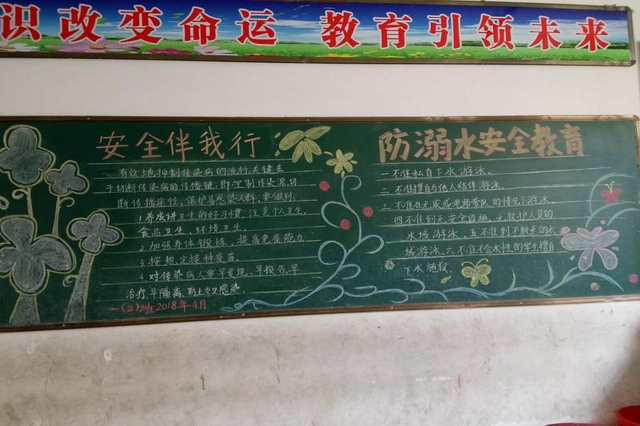 识改变命运 教育引领未来
安全伴我行
有效地抑制传染病的流行,关键在
于切断传染病的传播链,即控制传染源,切
断传播途径,保护易感染人群,要做到:
1.养成讲卫生的好习惯,注意个人卫生,
食品卫生、环境卫生.
2.加强身体锻炼,提高免疫能力.
3.按规定接种疫苗.
4.对传染病人要早发现,早报告,早
治疗,早隔离,防止交叉感染.
一(2)班2018年4月
防溺水安全教育
一不准私自下水游泳.
二不准擅自与他人结伴游泳.
三不准在无家长或老师带队的情况下游泳.
四不准到无安全设施、无救护人员的
水域游泳.五不准到不熟悉的水
域游泳.六不准不会水性的学生擅自
下水施救.